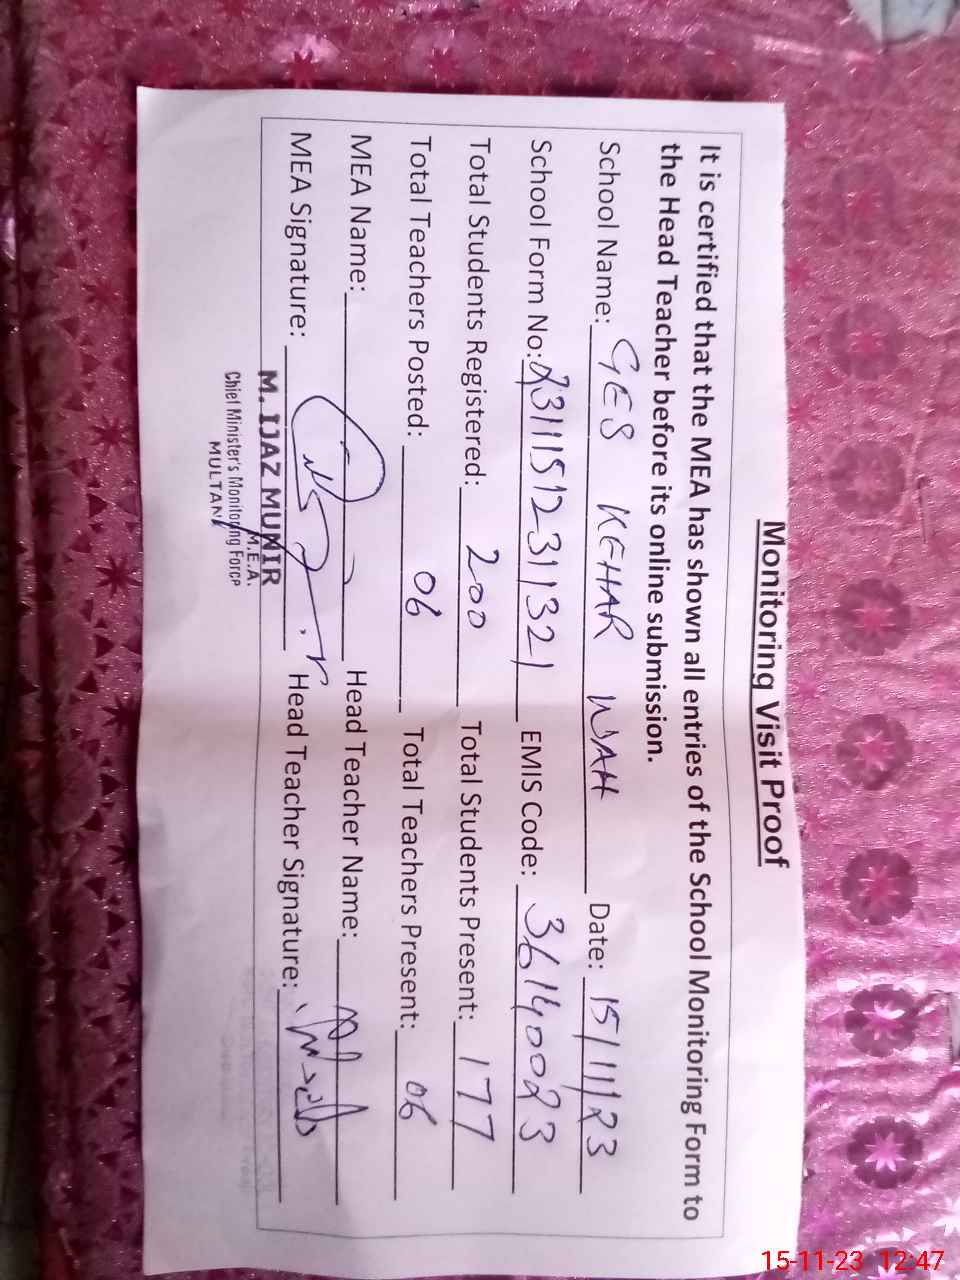 Monitoring Visit Proof
It is certified that the MEA has shown all entries of the School Monitoring Form to
the Head Teacher before its online submission.
School Name: GES KEHAR WAH Date: 15/11/23
School Form No: 23111512311321 EMIS Code: 36140023
Total Students Registered: 200 Total Students Present: 177
Total Teachers Posted: 06 Total Teachers Present: 06
MEA Name: Head Teacher Name:
MEA Signature: Head Teacher Signature:
M. IJAZ MUNIR
M.E.A.
Chief Minister's Monitoring Force
MULTAN
15-11-23 12:47